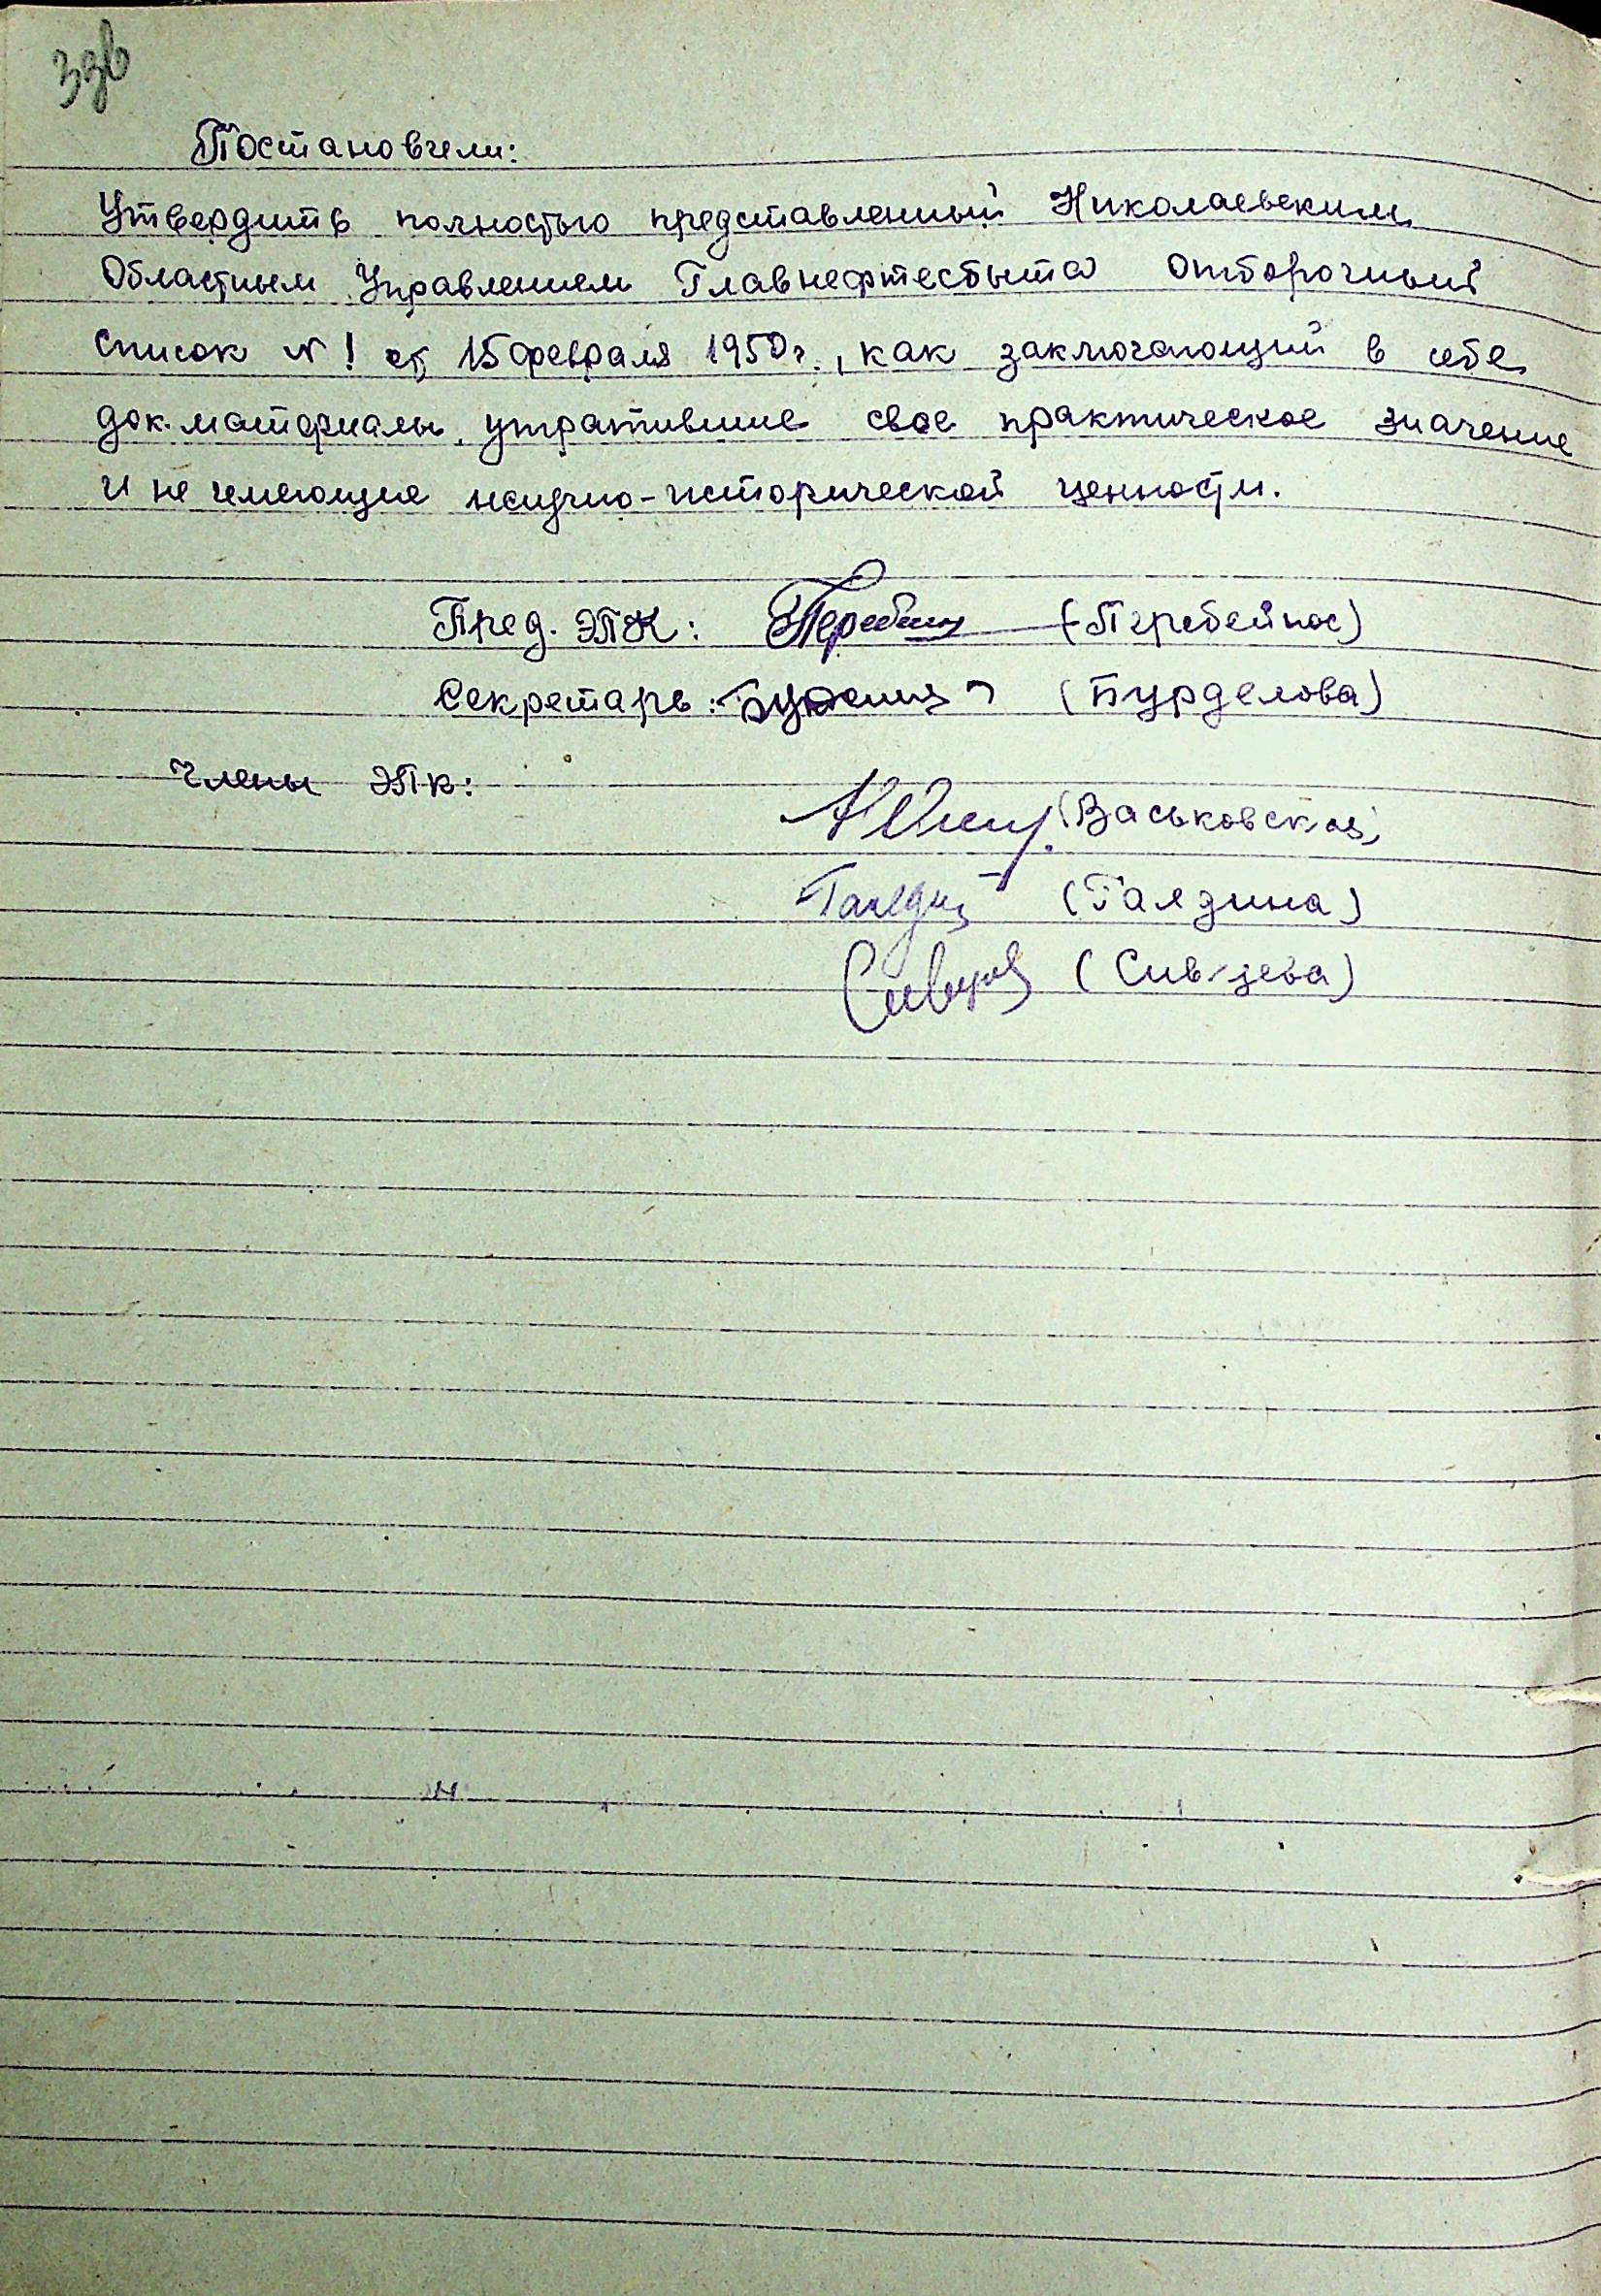 33в
Постановили:
Утвердить полностью представленный Николаевским
Областным Управлением Главнефтесбыта Отборочный
список № 1 от 15 февраля 1950 г., как заключающий в себе
док. материалы, утратившие свое практическое значение
и не имеющие научно-исторической ценности.
Пред. ЭПК: (Перебейнос)
Секретарь: (Бурделова)
Члены ЭПК:
(Васьковская)
(Галдина)
(Сивцева)